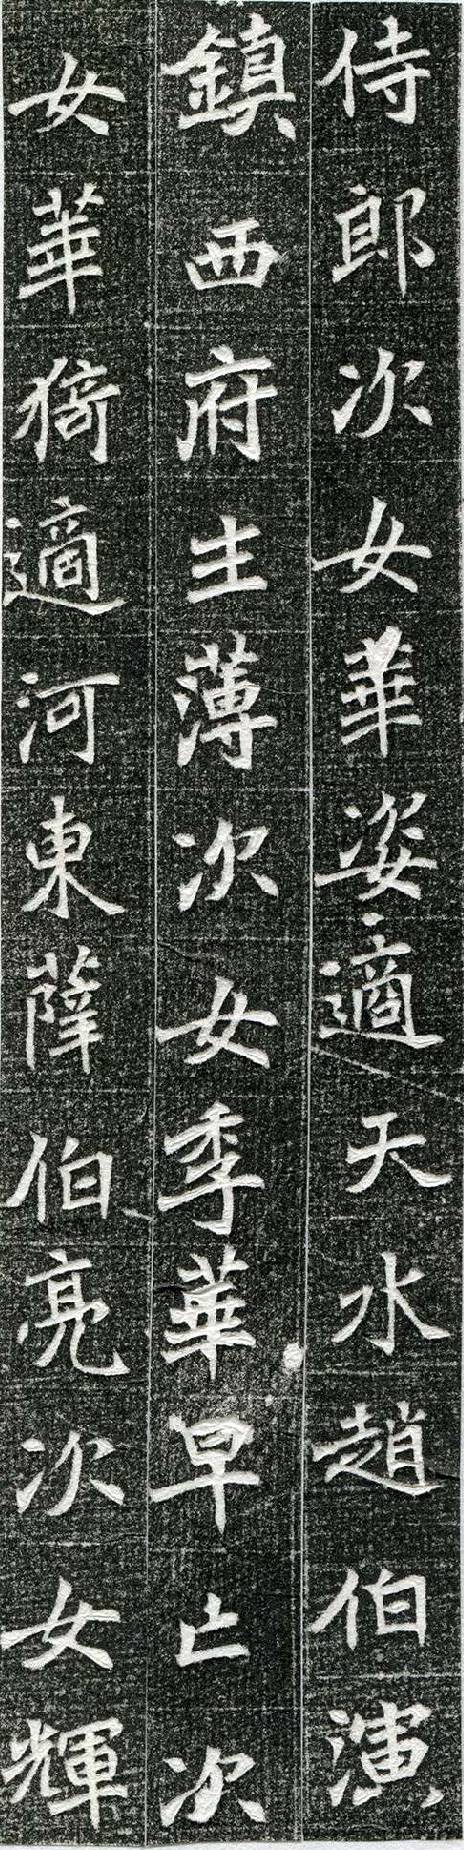 侍郎次女華姿適天水趙伯漼
鎮西府主薄次女季華早亡次
女華猗適河東薛伯亮次女輝